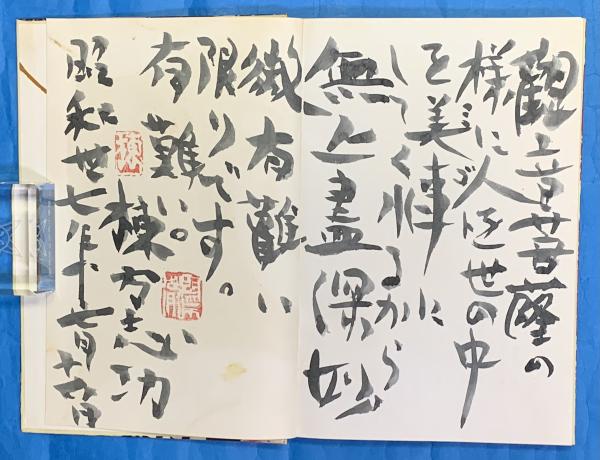 觀音菩薩の
様に人を世の中
を美事に
してくれるから
無上盡深妙
微有難い
限りです。
有難い。
棟方志功
昭和廿七年十一月